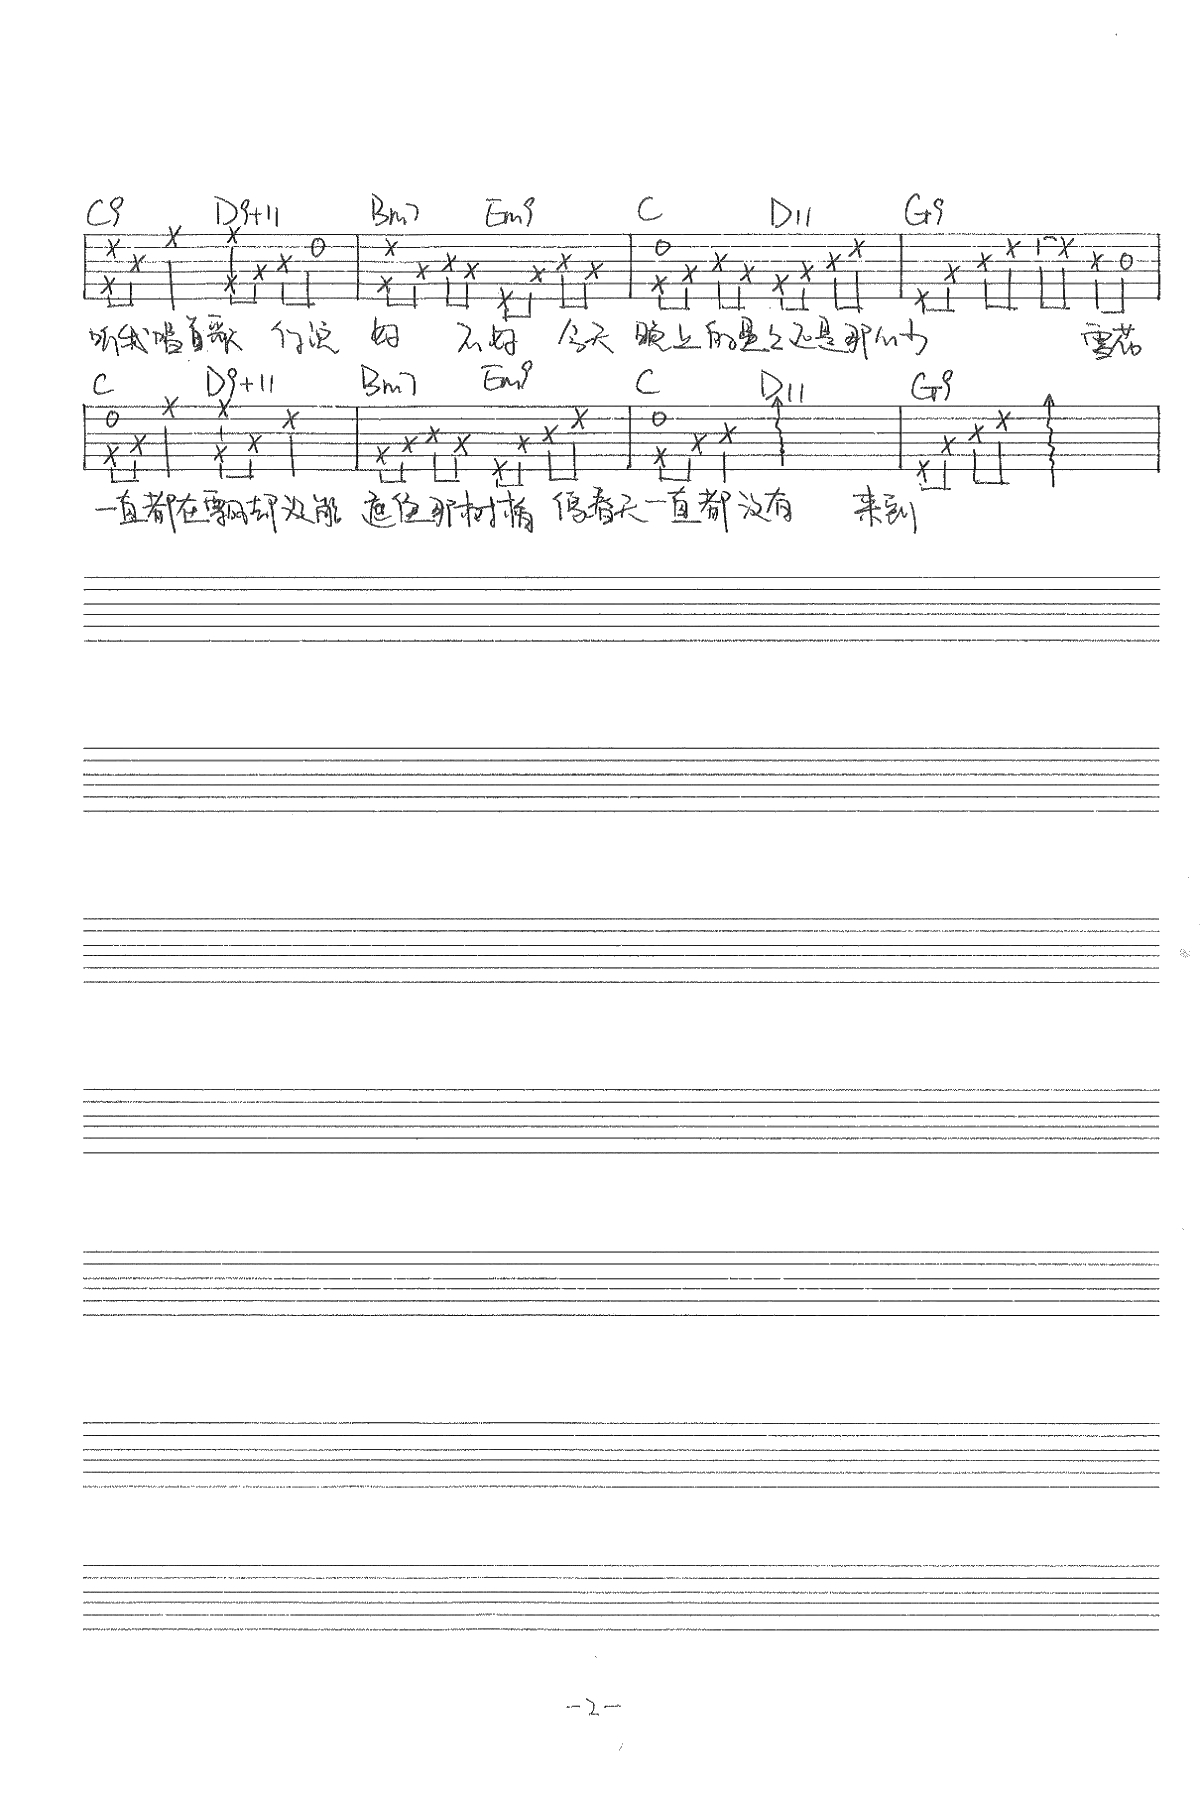 C9 D9+11 Bm7 Em9 C D11 G9
听我唱首歌 你说 好 不好 今天 晚上的星星还是那么少 雪花
C D9+11 Bm7 Em9 C D11 G9
一直都在飘却没能 遮住那树梢 像春天一直都没有 来到
-2-